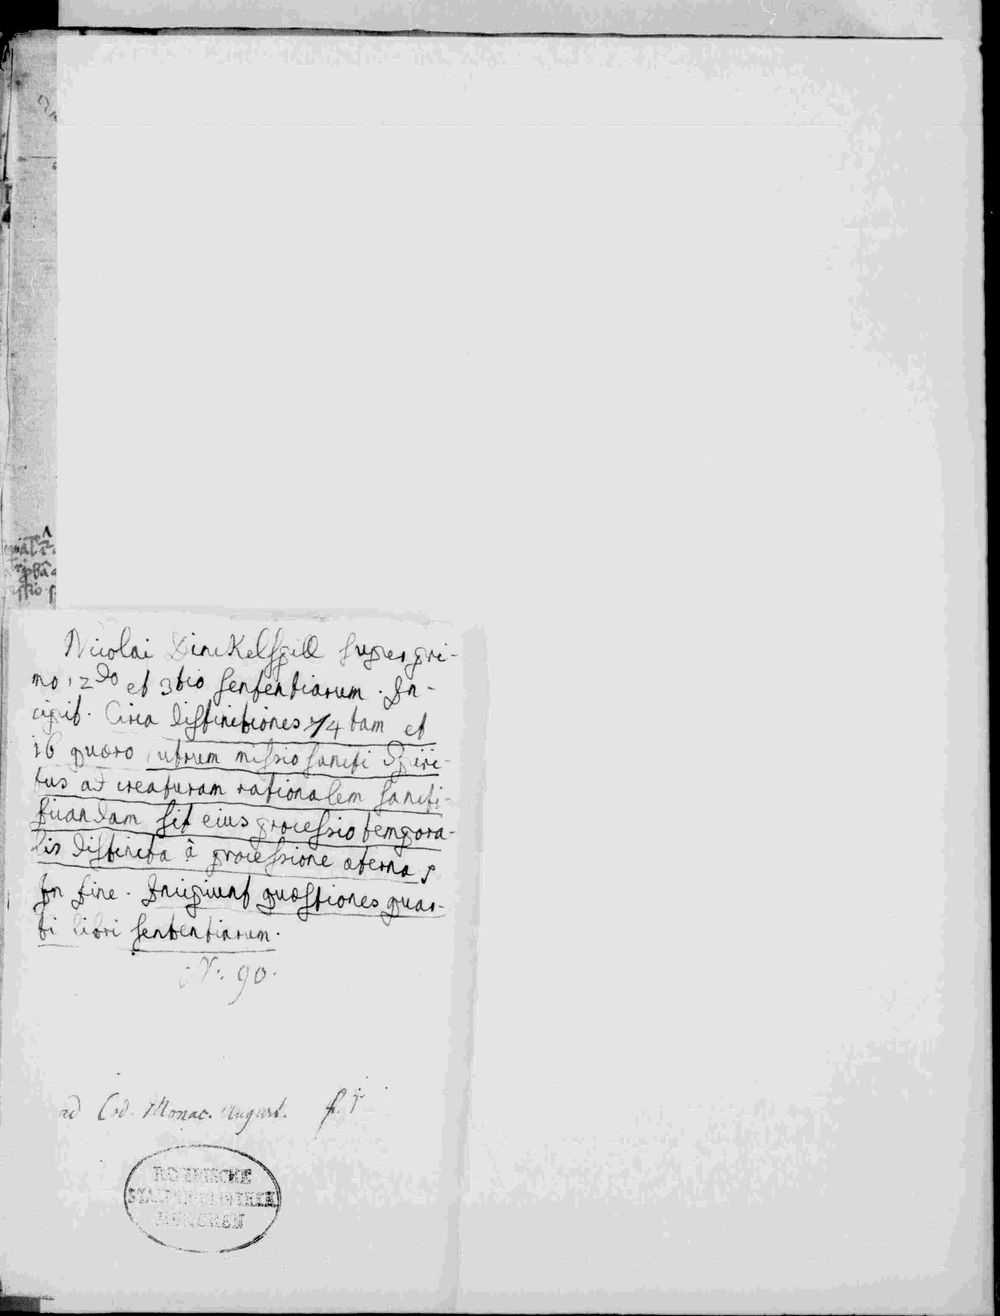 Nicolai Dinckelspill super pri-
mo, 2do et 3tio sententiarum. In-
cipit. Circa distinctiones 14 tam et
16 quæro, utrum missio sancti Spiri-
tus ad creaturam rationalem sancti-
ficandam sit eius processio tempora-
lis distincta à processione æterna?
In fine. Incipiunt quæstiones quar-
ti libri sententiarum.
N: 90.
ad Cod. Monac. August. f.
BAYERISCHE
STAATSBIBLIOTHEK
MÜNCHEN